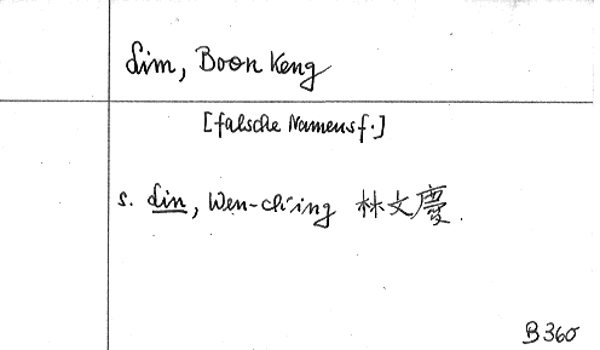 Lim, Boon Keng
[falsche Namensf.]
s. Lin, Wen-ch'ing 林文慶.
B 360